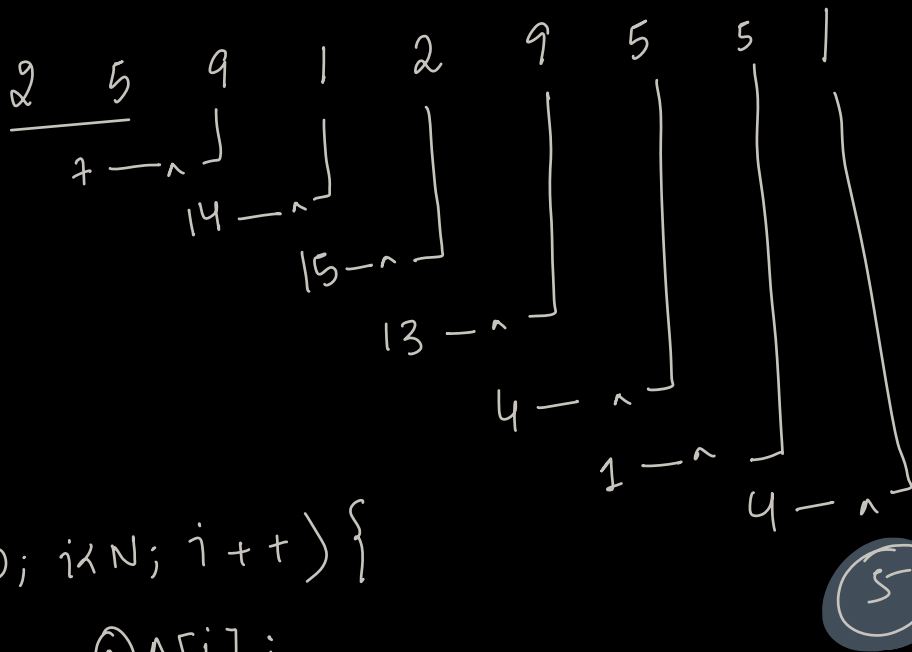 2 5 9 1 2 9 5 5 1
7 — ^
14 — ^
15 — ^
13 — ^
4 — ^
1 — ^
4 — ^
; i<N; i++){
5
A[i];